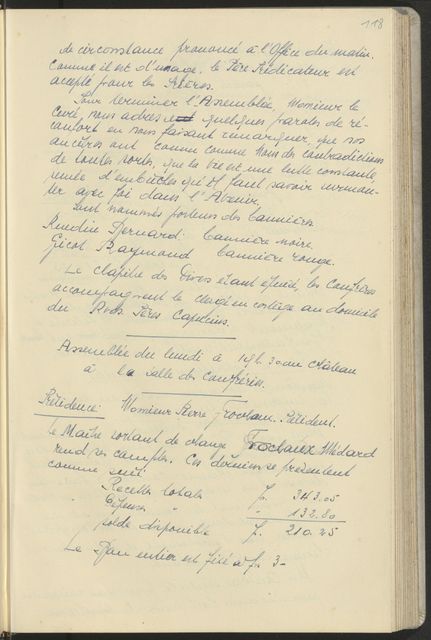 118
de circonstance prononcé à l'Office du matin.
Comme il est d'usage, le Père Prédicateur est
accepté pour les Frères.
Pour terminer l'Assemblée, Monsieur le
Curé, nous adresse quelques paroles de ré-
confort en nous faisant remarquer, que nos
ancêtres ont comme nous des contradictions
de toutes sortes, que la vie est une lutte constante
semée d'embûches qu'il faut savoir surmon-
ter avec foi dans l'Avenir.
Sont nommés porteurs des bannières
Ruedin Bernard: bannière noire.
Gicot Raymond bannière rouge.
Le chapitre des Divers étant épuisé, les Confrères
accompagnent le clergé en cortège au domicile
des Rvds Pères Capucins.
Assemblée du lundi à 14h.30 au Château
à la Salle des Confréries.
Présidence: Monsieur Pierre Frochaux. Président.
Le Maître sortant de charge Frochaux Médard
rend ses comptes. Ces derniers se présentent
comme suit:
Recettes totales fr. 343.05
Dépenses " " 132.80
Solde disponible fr. 210.25
Le entier est fixé à fr. 3-